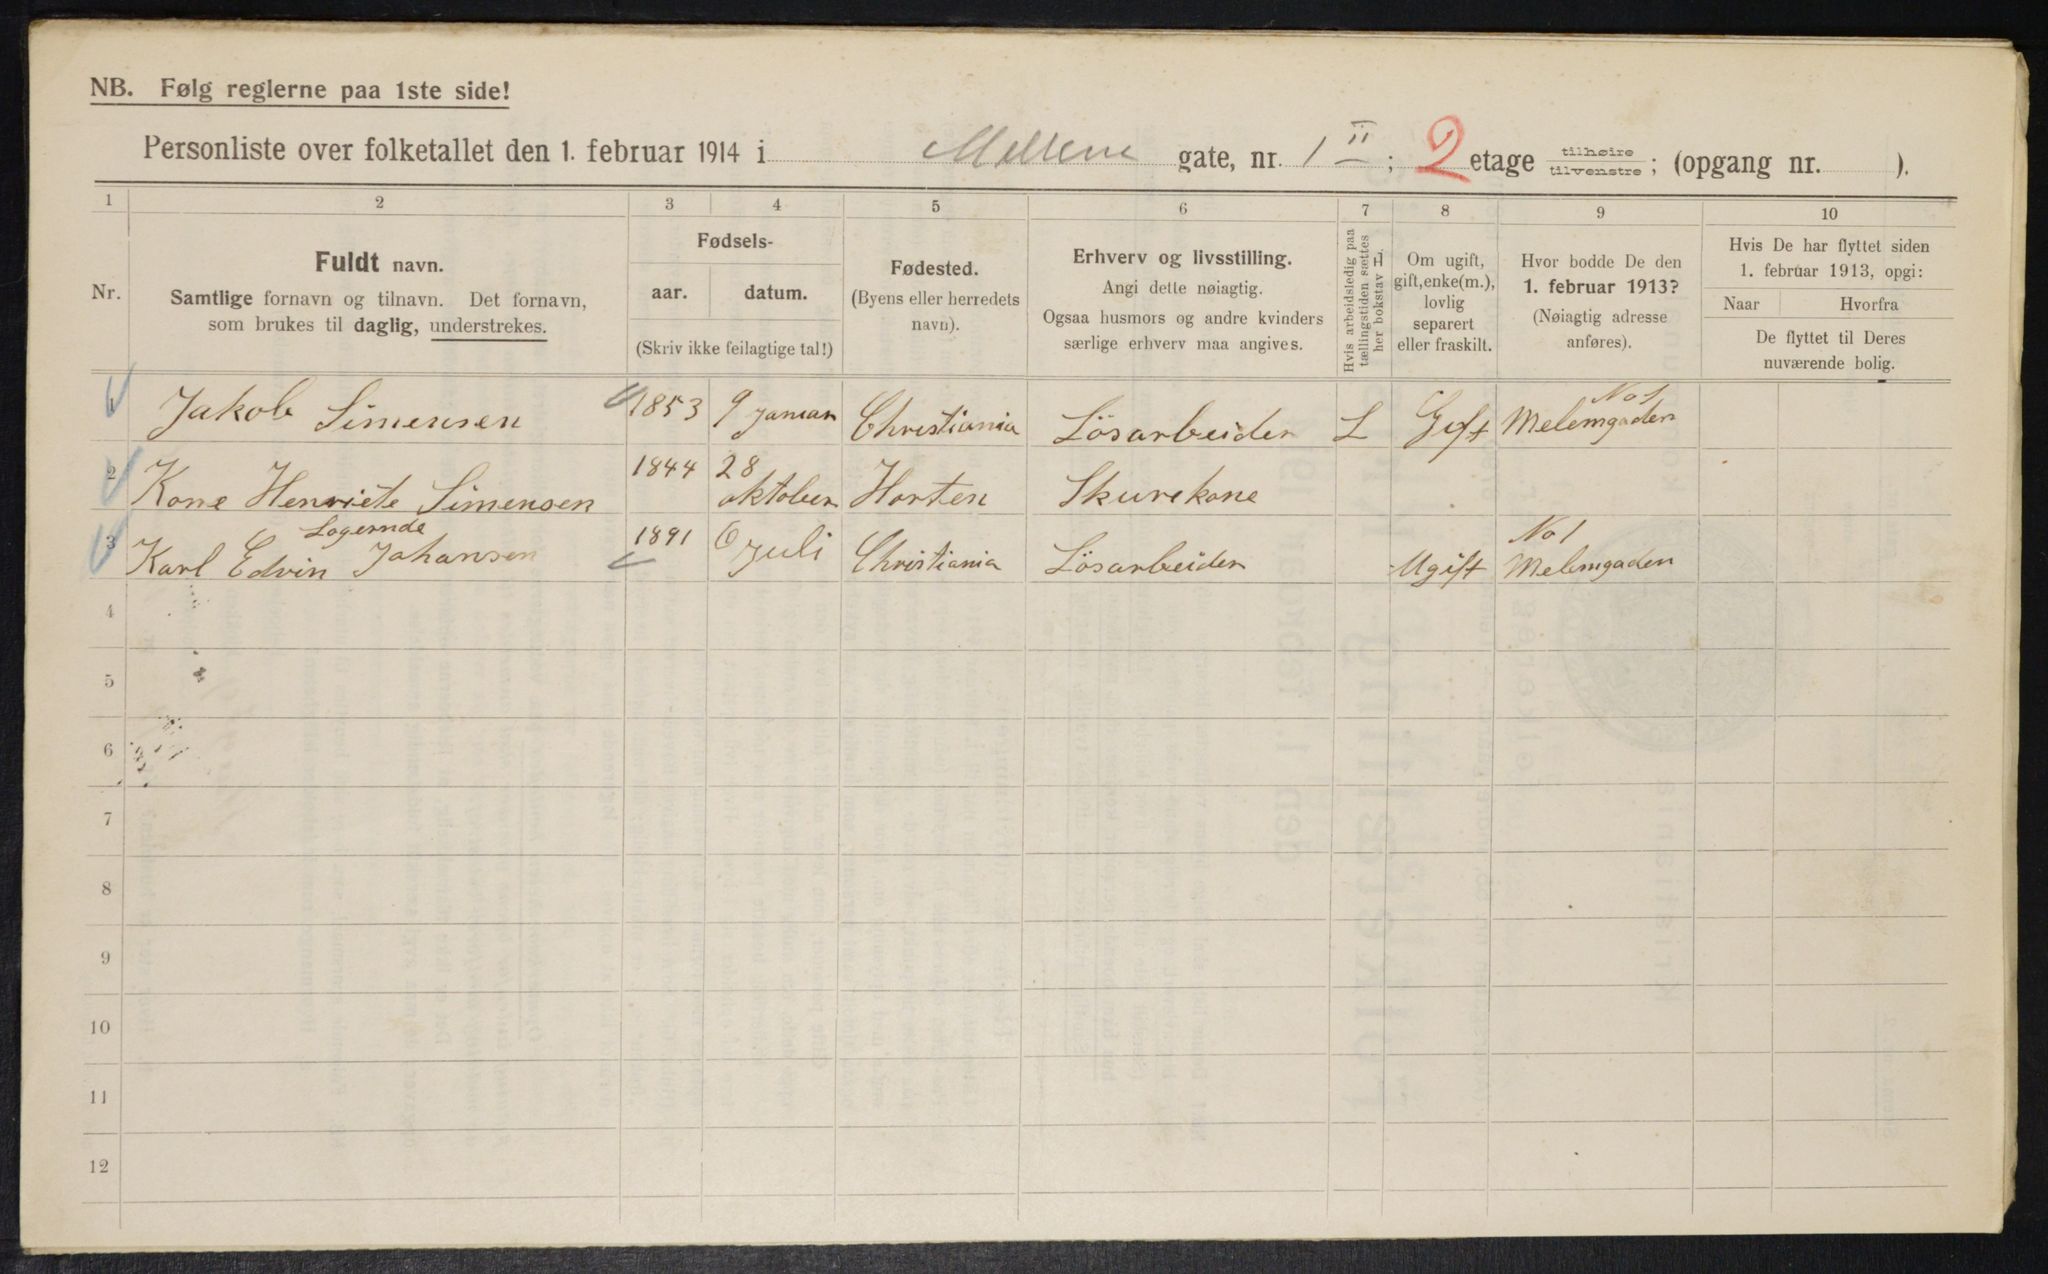 NB. Følg reglerne paa 1ste side!
Personliste over folketallet den 1. februar 1914 i gate, nr. 1 II; 2 etage tilhøire tilvenstre; (opgang nr. ).
1 2 3 4 5 6 7 8 9 10
Nr.
Fuldt navn.
Samtlige fornavn og tilnavn. Det fornavn,
som brukes til daglig, understrekes.
Fødsels-
aar. datum.
(Skriv ikke feilagtige tal!)
Fødested.
(Byens eller herredets
navn).
Erhverv og livsstilling.
Angi dette nøiagtig.
Ogsaa husmors og andre kvinders
særlige erhverv maa angives.
Hvis arbeidsledig paa
tællingstiden sættes
her bokstav L.
Om ugift,
gift, enke(m.),
lovlig
separert
eller fraskilt.
Hvor bodde De den
1. februar 1913?
(Nøiagtig adresse
anføres).
Hvis De har flyttet siden
1. februar 1913, opgi:
Naar Hvorfra
De flyttet til Deres
nuværende bolig.
1 Jakob Simensen 1853 9 Januar Christiania Lösarbeider L Gift No 1 Melemgaden
2 Kone Henriete Simensen 1844 28 oktober Horten Skurekone
Logernde
3 Karl Edvin Johansen 1891 6 Juli Christiania Lösarbeider Ugift No 1 Melemgaden
4
5
6
7
8
9
10
11
12